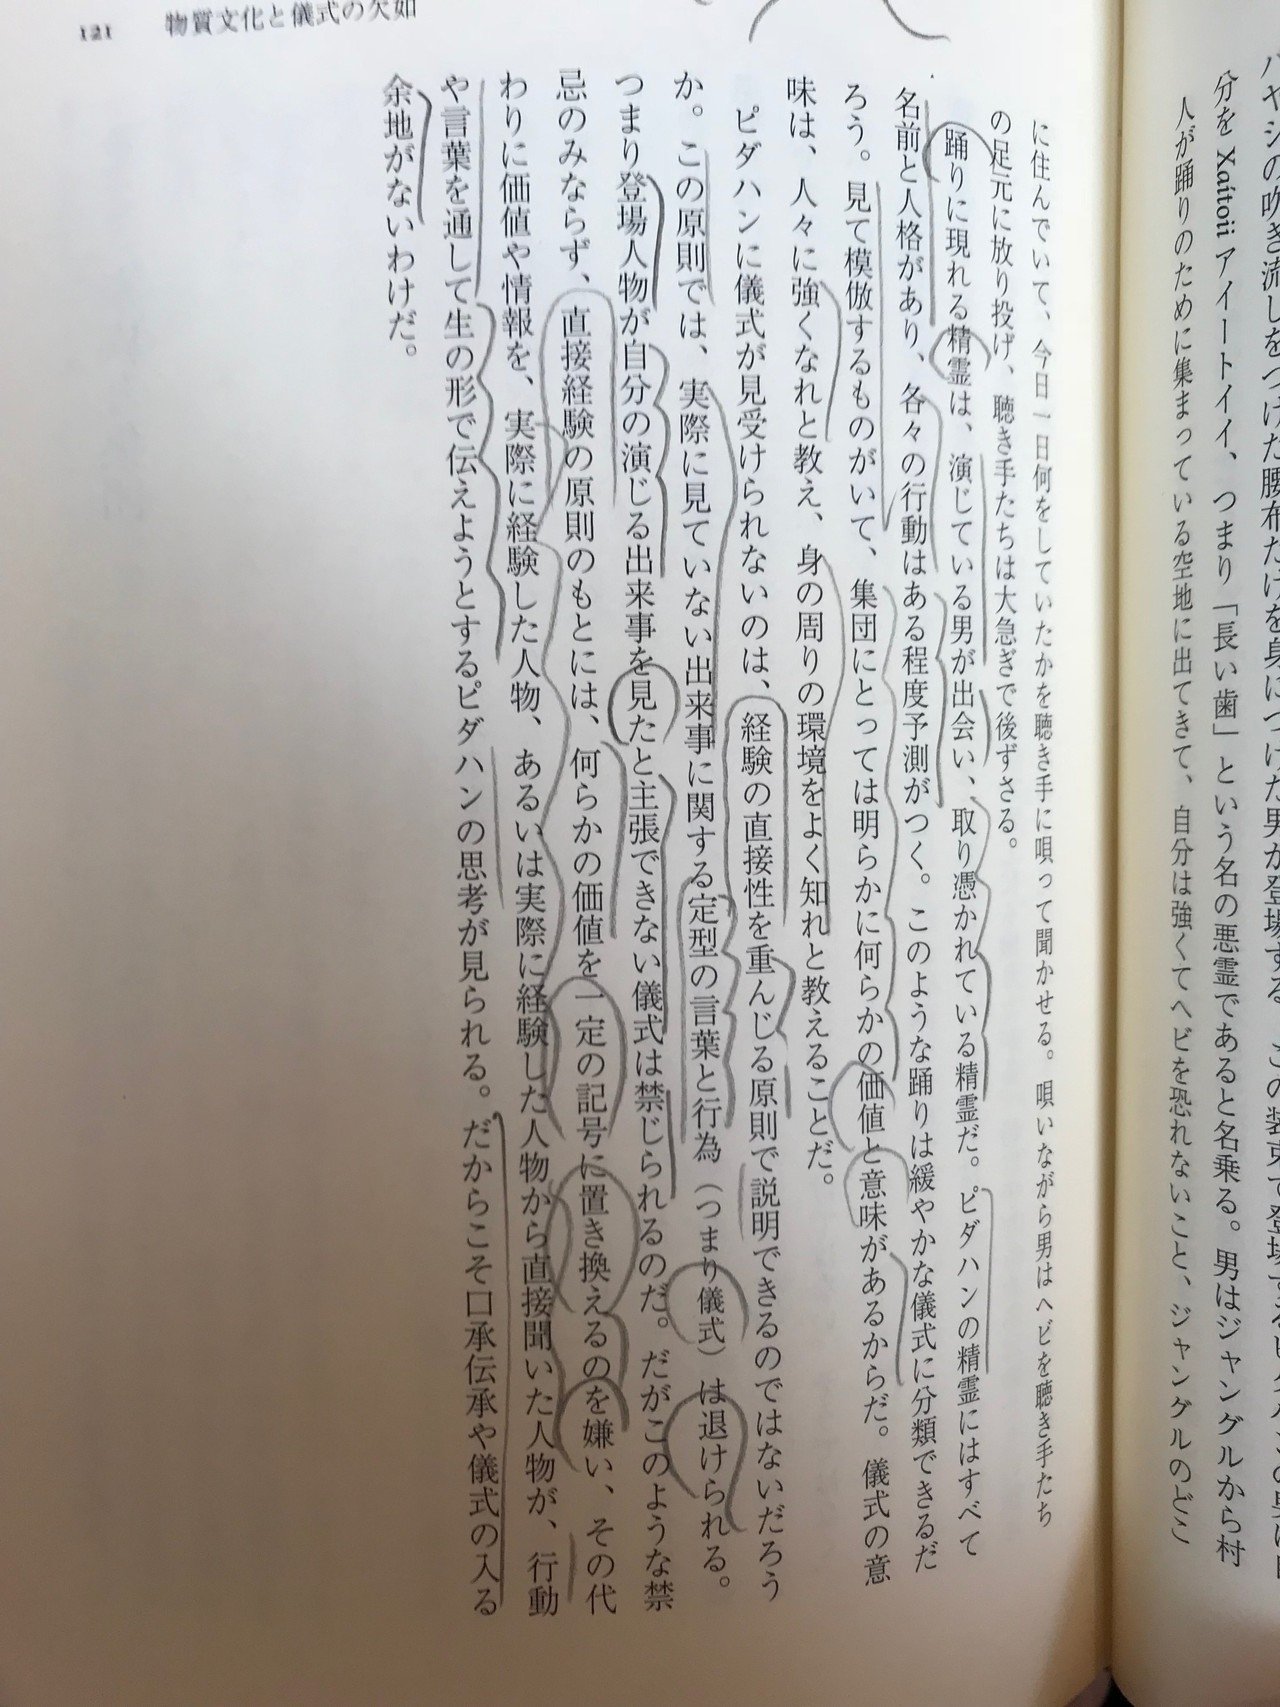 121 物質文化と儀式の欠如
分を Xaítoíi アイートイイ、つまり「長い歯」という名の悪霊であると名乗る。男はジャングルから村
人が踊りのために集まっている空地に出てきて、自分は強くてヘビを恐れないこと、ジャングルのどこ
に住んでいて、今日一日何をしていたかを聴き手に唄って聞かせる。唄いながら男はヘビを聴き手たち
の足元に放り投げ、聴き手たちは大急ぎで後ずさる。
踊りに現れる精霊は、演じている男が出会い、取り憑かれている精霊だ。ピダハンの精霊にはすべて
名前と人格があり、各々の行動はある程度予測がつく。このような踊りは緩やかな儀式に分類できるだ
ろう。見て模倣するものがいて、集団にとっては明らかに何らかの価値と意味があるからだ。儀式の意
味は、人々に強くなれと教え、身の周りの環境をよく知れと教えることだ。
ピダハンに儀式が見受けられないのは、経験の直接性を重んじる原則で説明できるのではないだろう
か。この原則では、実際に見ていない出来事に関する定型の言葉と行為（つまり儀式）は退けられる。
つまり登場人物が自分の演じる出来事を見たと主張できない儀式は禁じられるのだ。だがこのような禁
忌のみならず、直接経験の原則のもとには、何らかの価値を一定の記号に置き換えるのを嫌い、その代
わりに価値や情報を、実際に経験した人物、あるいは実際に経験した人物から直接聞いた人物が、行動
や言葉を通して生の形で伝えようとするピダハンの思考が見られる。だからこそ口承伝承や儀式の入る
余地がないわけだ。